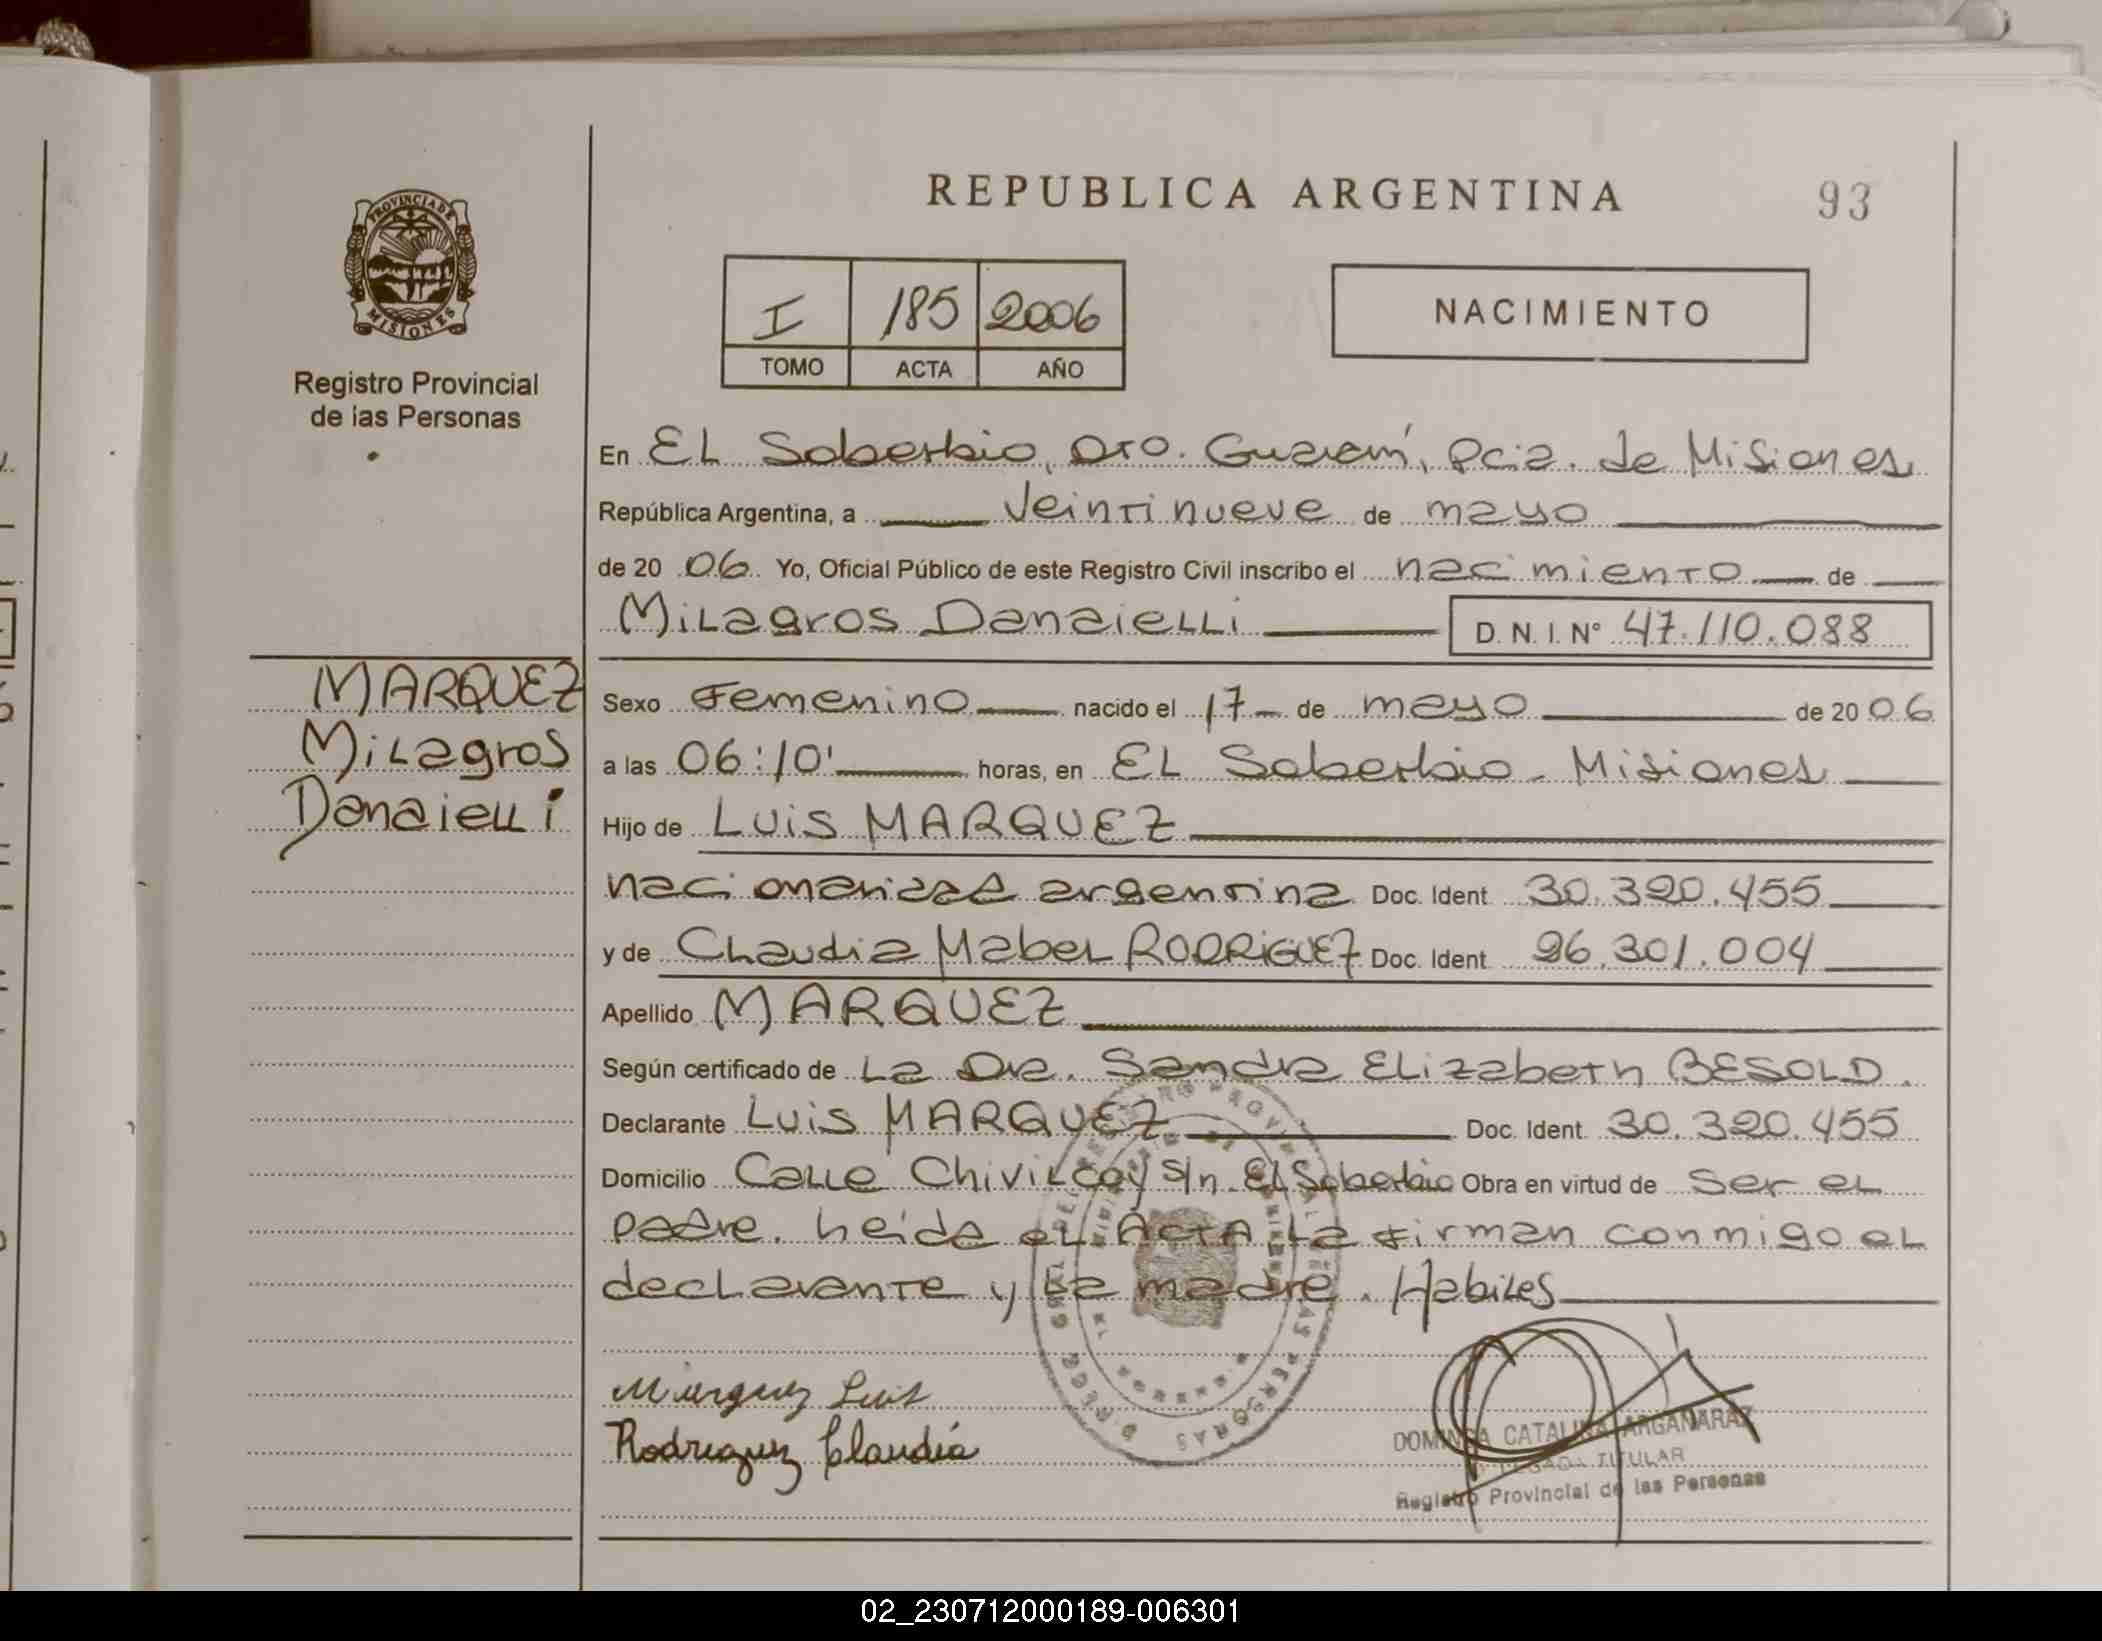 PROVINCIA DE
MISIONES
Registro Provincial
de las Personas
REPUBLICA ARGENTINA
93
I 185 2006
TOMO ACTA AÑO
NACIMIENTO
En EL Soberbio, Dto. Guaraní, Pcia. de Misiones
República Argentina, a veintinueve de mayo
de 20 06 Yo, Oficial Público de este Registro Civil inscribo el nacimiento de
Milagros Danaielli D. N. I. Nº 47.110.088
MARQUEZ
Milagros
Danaielli
Sexo Femenino nacido el 17 de mayo de 20 06
a las 06:10' horas, en EL Soberbio - Misiones
Hijo de Luis MARQUEZ
nacionalidad argentina Doc. Ident. 30.320.455
y de Claudia Mabel RODRIGUEZ Doc. Ident. 26.301.004
Apellido MARQUEZ
Según certificado de La Dra. Sandra Elizabeth BESOLD.
Declarante Luis MARQUEZ Doc. Ident. 30.320.455
Domicilio Calle Chivilcoy s/n. El Soberbio Obra en virtud de ser el
padre. Leída el ACTA, La firman conmigo el
declarante y La madre. Habiles
Marquez Luis
Rodriguez Claudia
DOMINGA CATALINA ARGAÑARAZ
DELEGADA TITULAR
Registro Provincial de las Personas
02_230712000189-006301